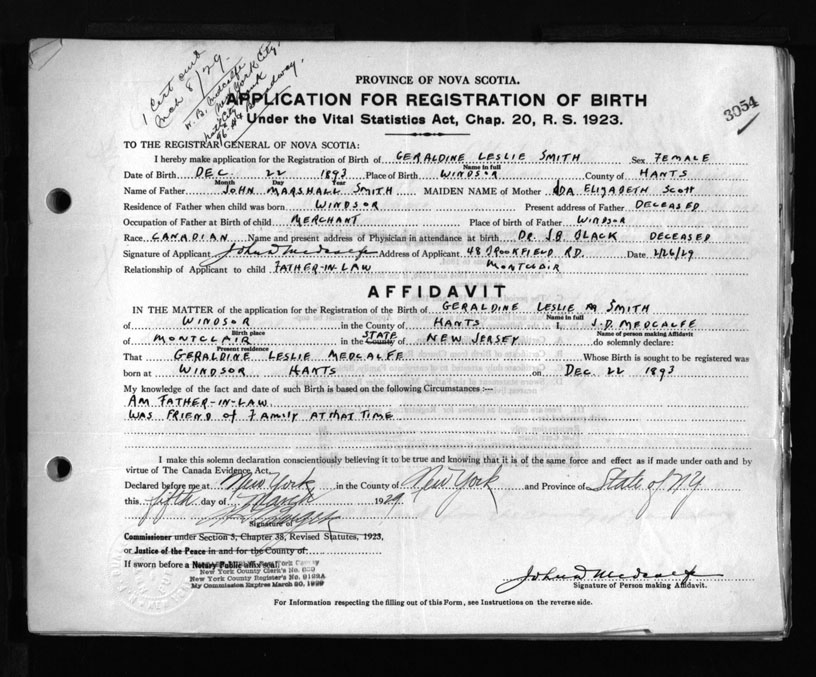 1 Cert out
Mch 8/29.
W. B. Medcalfe
New York City.
Natl City Bank
96 Broadway.
PROVINCE OF NOVA SCOTIA.
APPLICATION FOR REGISTRATION OF BIRTH
Under the Vital Statistics Act, Chap. 20, R. S. 1923.
3054
TO THE REGISTRAR GENERAL OF NOVA SCOTIA:
I hereby make application for the Registration of Birth of GERALDINE LESLIE SMITH Sex FEMALE
Name in full
Date of Birth DEC. 22 1893 Place of Birth WINDSOR County of HANTS
Month Day Year
Name of Father JOHN MARSHALL SMITH MAIDEN NAME of Mother ADA ELIZABETH SCOTT
Residence of Father when child was born WINDSOR Present address of Father DECEASED
Occupation of Father at Birth of child MERCHANT Place of birth of Father WINDSOR
Race CANADIAN Name and present address of Physician in attendance at birth DR. J.B. BLACK DECEASED
Signature of Applicant John D Medcalfe Address of Applicant 48 BROOKFIELD RD. Date 2/26/29
Relationship of Applicant to child FATHER-IN-LAW MONTCLAIR
AFFIDAVIT
IN THE MATTER of the application for the Registration of the Birth of GERALDINE LESLIE SMITH
Name in full
of WINDSOR in the County of HANTS I, J.D. MEDCALFE
Birth place Name of person making Affidavit
of MONTCLAIR in the County STATE of NEW JERSEY do solemnly declare:
Present residence
That GERALDINE LESLIE MEDCALFE Whose Birth is sought to be registered was
born at WINDSOR HANTS on DEC 22 1893
My knowledge of the fact and date of such Birth is based on the following Circumstances :—
AM FATHER-IN-LAW.
WAS FRIEND OF FAMILY AT THAT TIME
I make this solemn declaration conscientiously believing it to be true and knowing that it is of the same force and effect as if made under oath and by
virtue of The Canada Evidence Act.
Declared before me at New York in the County of New York and Province of State of NY
this fifth day of March 1929
Signature of
Commissioner under Section 5, Chapter 38, Revised Statutes, 1923,
or Justice of the Peace in and for the County of:
If sworn before a Notary Public affix seal
New York County Clerk's No.
New York County Register's No.
My Commission Expires March 30, 1929
John D Medcalfe
Signature of Person making Affidavit.
For Information respecting the filling out of this Form, see Instructions on the reverse side.